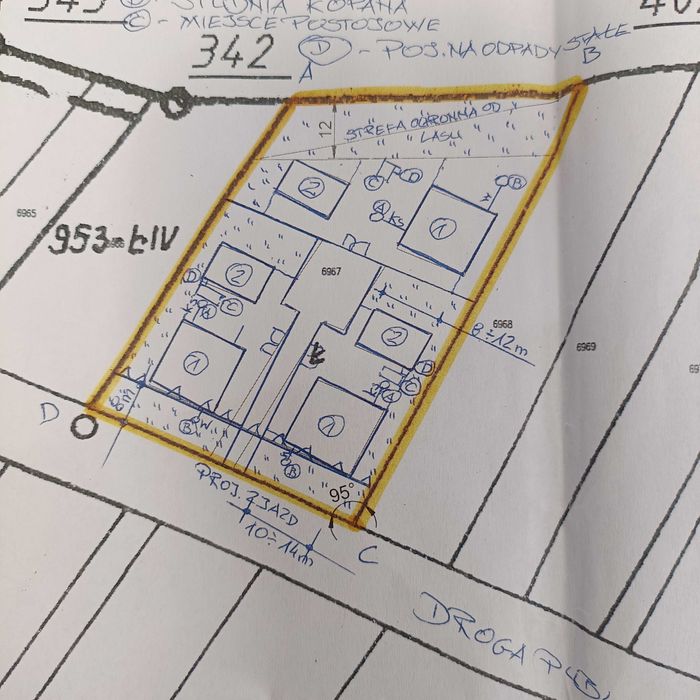 343
Ⓑ - STUDNIA KOPANA
Ⓒ - MIEJSCE POSTOJOWE
Ⓓ - POJ. NA ODPADY STAŁE
342
A
B
12
STREFA OCHRONNA OD
LASU
6965
953-ŁIV
②
Ⓒ
Ⓓ
Ⓑ
Ⓐ
KS
①
6967
②
Ⓓ
Ⓒ
Ⓐ
6968
8÷12m
②
6969
①
Ⓓ
Ⓒ
Ⓐ
①
8m
D
W
Ⓑ
Ⓑ
PROJ. ZJAZD
95°
10÷14m
C
DROGA PUB